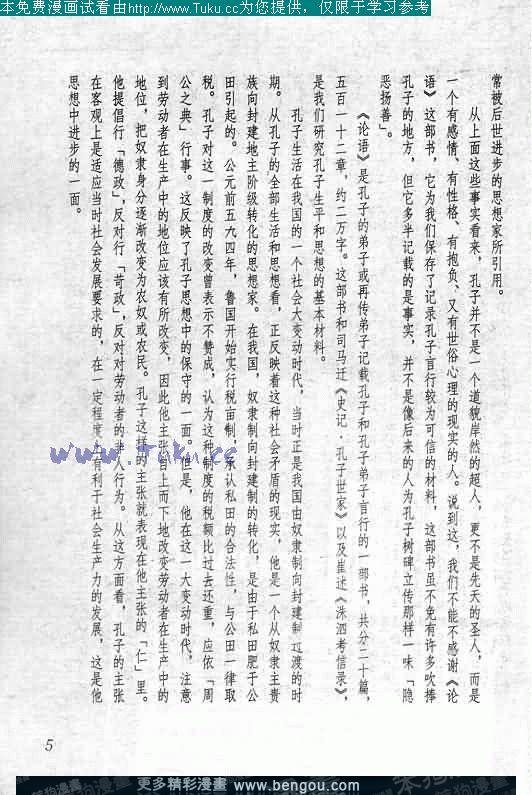 本免费漫画试看由http://www.Tuku.cc为您提供，仅限于学习参考
常被后世进步的思想家所引用。
从上面这些事实看来，孔子并不是一个道貌岸然的超人，更不是先天的圣人，而是
一个有感情、有性格、有抱负、又有世俗心理的现实的人。说到这，我们不能不感谢《论
语》这部书，它为我们保存了记录孔子言行较为可信的材料，这部书虽不免有许多吹捧
孔子的地方，但它多半记载的是事实，并不是像后来的人为孔子树碑立传那样一味「隐
恶扬善」。
《论语》是孔子的弟子或再传弟子记载孔子和孔子弟子言行的一部书，共分二十篇，
五百一十二章，约二万字。这部书和司马迁《史记·孔子世家》以及崔述《洙泗考信录》，
是我们研究孔子生平和思想的基本材料。
孔子生活在我国的一个社会大变动时代，当时正是我国由奴隶制向封建制过渡的时
期。从孔子的全部生活和思想看，正反映着这种社会矛盾的现实，他是一个从奴隶主贵
族向封建地主阶级转化的思想家。在我国，奴隶制向封建制的转化，是由于私田肥于公
田引起的。公元前五九四年，鲁国开始实行税亩制，承认私田的合法性，与公田一律取
税。孔子对这一制度的改变曾表示不赞成，认为这种制度的税额比过去还重，应依「周
公之典」行事。这反映了孔子思想中的保守的一面。但是，他在这一大变动时代，注意
到劳动者在生产中的地位应该有所改变，因此他主张自上而下地改变劳动者在生产中的
地位，把奴隶身分逐渐改变为农奴或农民。孔子这样的主张就表现在他主张的「仁」里。
他提倡行「德政」，反对行「苛政」，反对对劳动者的非人行为。从这方面看，孔子的主张
在客观上是适应当时社会发展要求的，在一定程度上有利于社会生产力的发展，这是他
思想中进步的一面。
www.Tuku.cc
5
更多精彩漫画
www.bengou.com